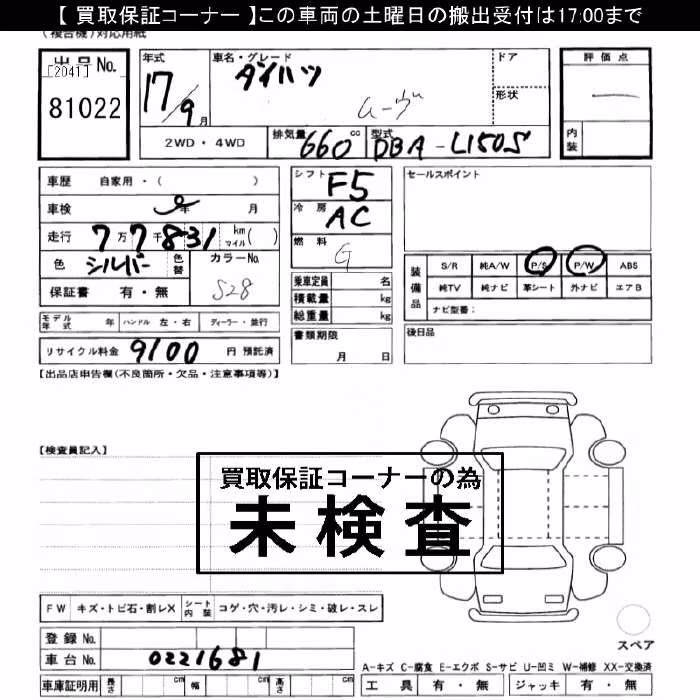 【 買取保証コーナー 】この車両の土曜日の搬出受付は17:00まで
(複合機)対応用紙
出品No.
[2041]
81022
年式
17/9月
車名・グレード
ダイハツ
ムーヴ
ドア
形状
評価点
内装
2WD・4WD
排気量 660 cc
型式 DBA-L150S
車歴 自家用・( )
車検 年 月
走行 7万7千831 km マイル( )
色 シルバー 色替
カラーNo. S28
保証書 有・無
シフト F5
冷房 AC
燃料 G
乗車定員 名
積載量 kg
総重量 kg
セールスポイント
装備品
S/R 純A/W P/S P/W ABS
純TV 純ナビ 革シート 外ナビ エアB
ナビ型番:
モデル年式 年 ハンドル 左・右 ディーラー・並行
リサイクル料金 9100 円 預託済
書類期限
月 日
後日品
【出品店申告欄(不良箇所・欠品・注意事項等)】
【検査員記入】
買取保証コーナーの為
未検査
FW キズ・トビ石・割レX シート内装 コゲ・穴・汚レ・シミ・破レ・スレ
登録No.
車台No. 0221681
スペア
A-キズ C-腐食 E-エクボ S-サビ U-凹ミ W-補修 XX-交換済
車庫証明用 長さ cm 幅 cm 高さ cm
工具 有・無 ジャッキ 有・無